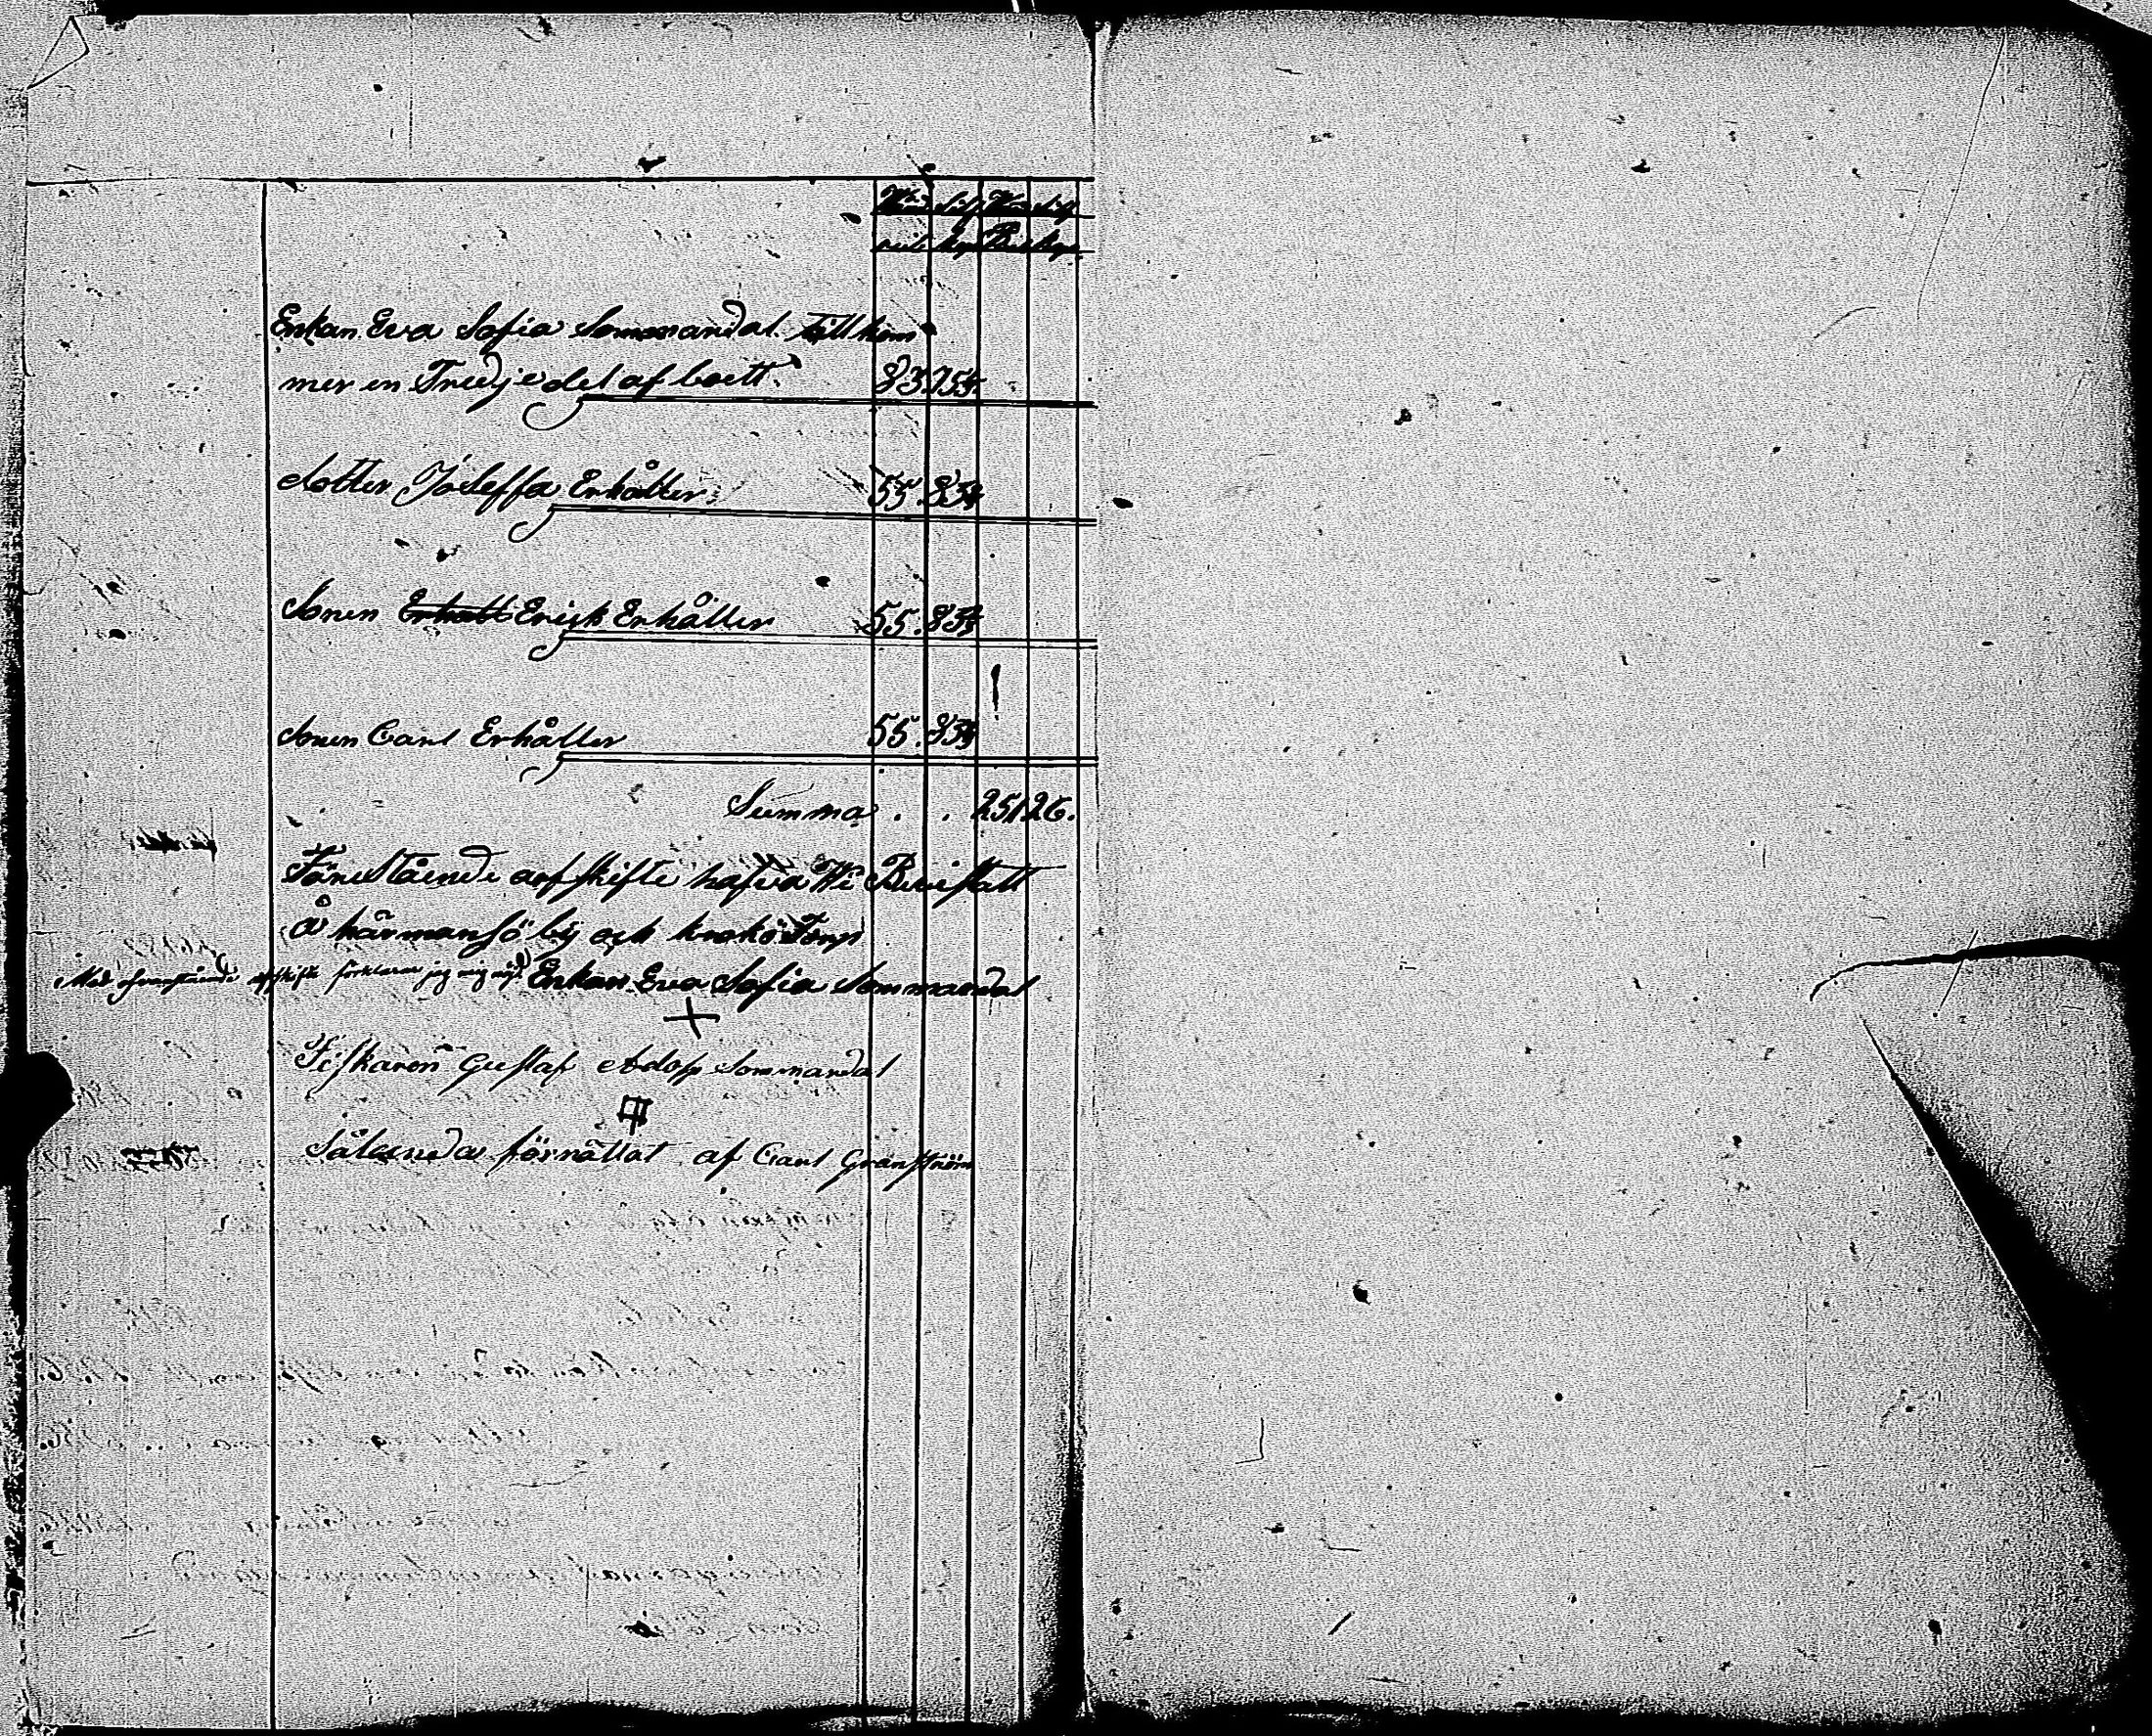 Enkan Eva Sofia Sommardal tillkom
mer en Tredjedel af boett. 83.75
dotter Joseffa Erhåller 55.83
Sonen Erhåll Erick Erhåller 55.83
Sonen Carl Erhåller 55.83
Summa . . 251 26.
Förestående arfskifte hafva Wi Bevistatt
å härmansö by och krokö Torp
Med ofvanstående arfskifte förklarar jag mig nöjd Enkan Eva Sofia Sommardal
Fiskaren Gustaf Adolf Sommardal
Sålunda förrättat af Carl Granström